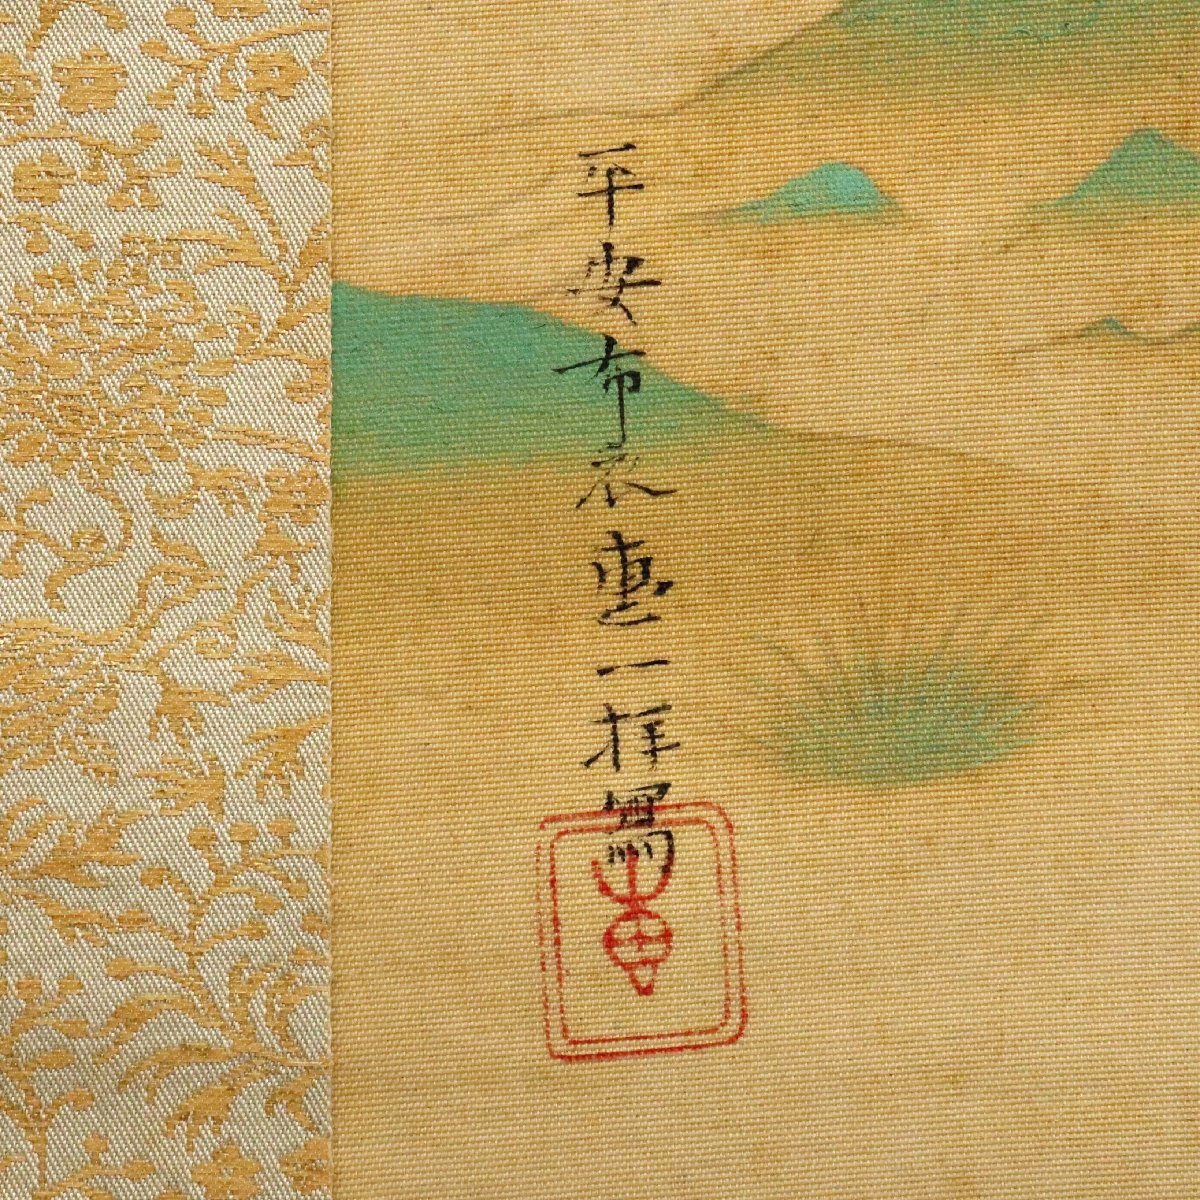 平安布衣惠一拝寫